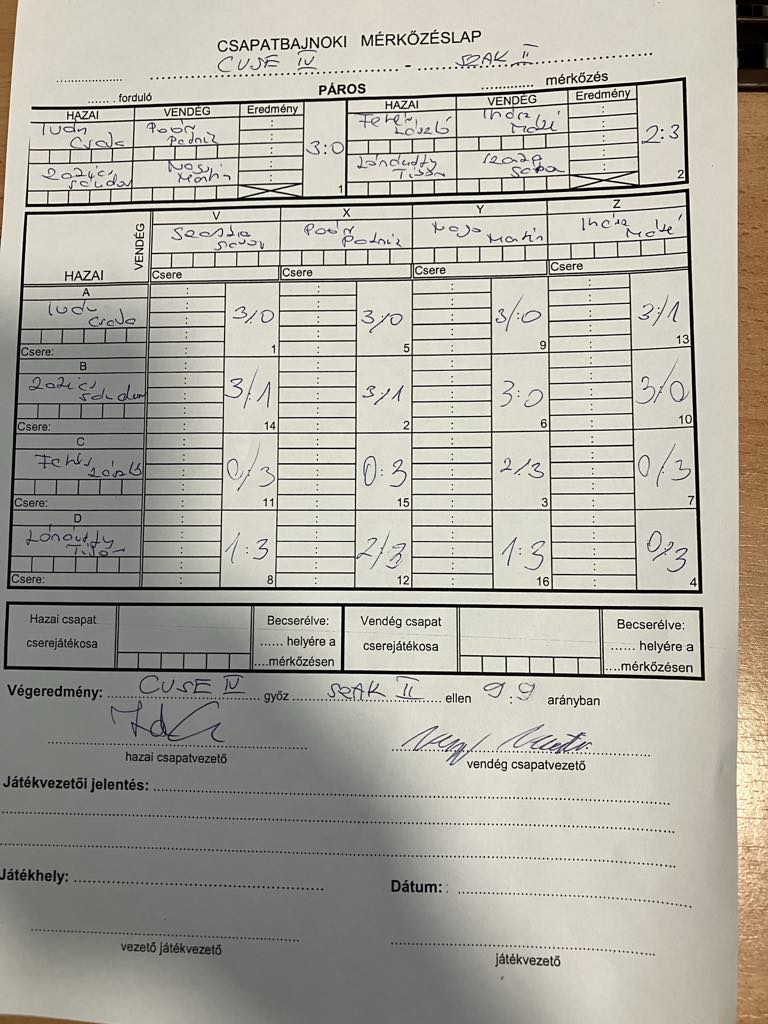 CSAPATBAJNOKI MÉRKŐZÉSLAP
CUSE IV - SZAK II
....... forduló PÁROS ............ mérkőzés
HAZAI VENDÉG Eredmény HAZAI VENDÉG Eredmény
Csaba Patrik 3:0 László Máté 2:3
Nagy Martin Tibor
1 2
V X Y Z
VENDÉG
Patrik Nagy Martin Ihász Máté
HAZAI Csere Csere Csere Csere
A
Csaba 3/0 3/0 3/:0 3:/1
Csere: 1 5 9 13
B
3/1 3/1 3:0 3/0
Csere: 14 2 6 10
C
László 0/3 0:3 2/3 0/3
Csere: 11 15 3 7
D
Tibor 1:3 2/3 1:3 0/3
Csere: 8 12 16 4
Hazai csapat Becserélve: Vendég csapat Becserélve:
cserejátékosa ...... helyére a cserejátékosa ...... helyére a
....mérkőzésen ....mérkőzésen
Végeredmény: CUSE IV győz SZAK II ellen 9:9 arányban
hazai csapatvezető vendég csapatvezető
Játékvezetői jelentés:
Játékhely: Dátum: :
vezető játékvezető játékvezető